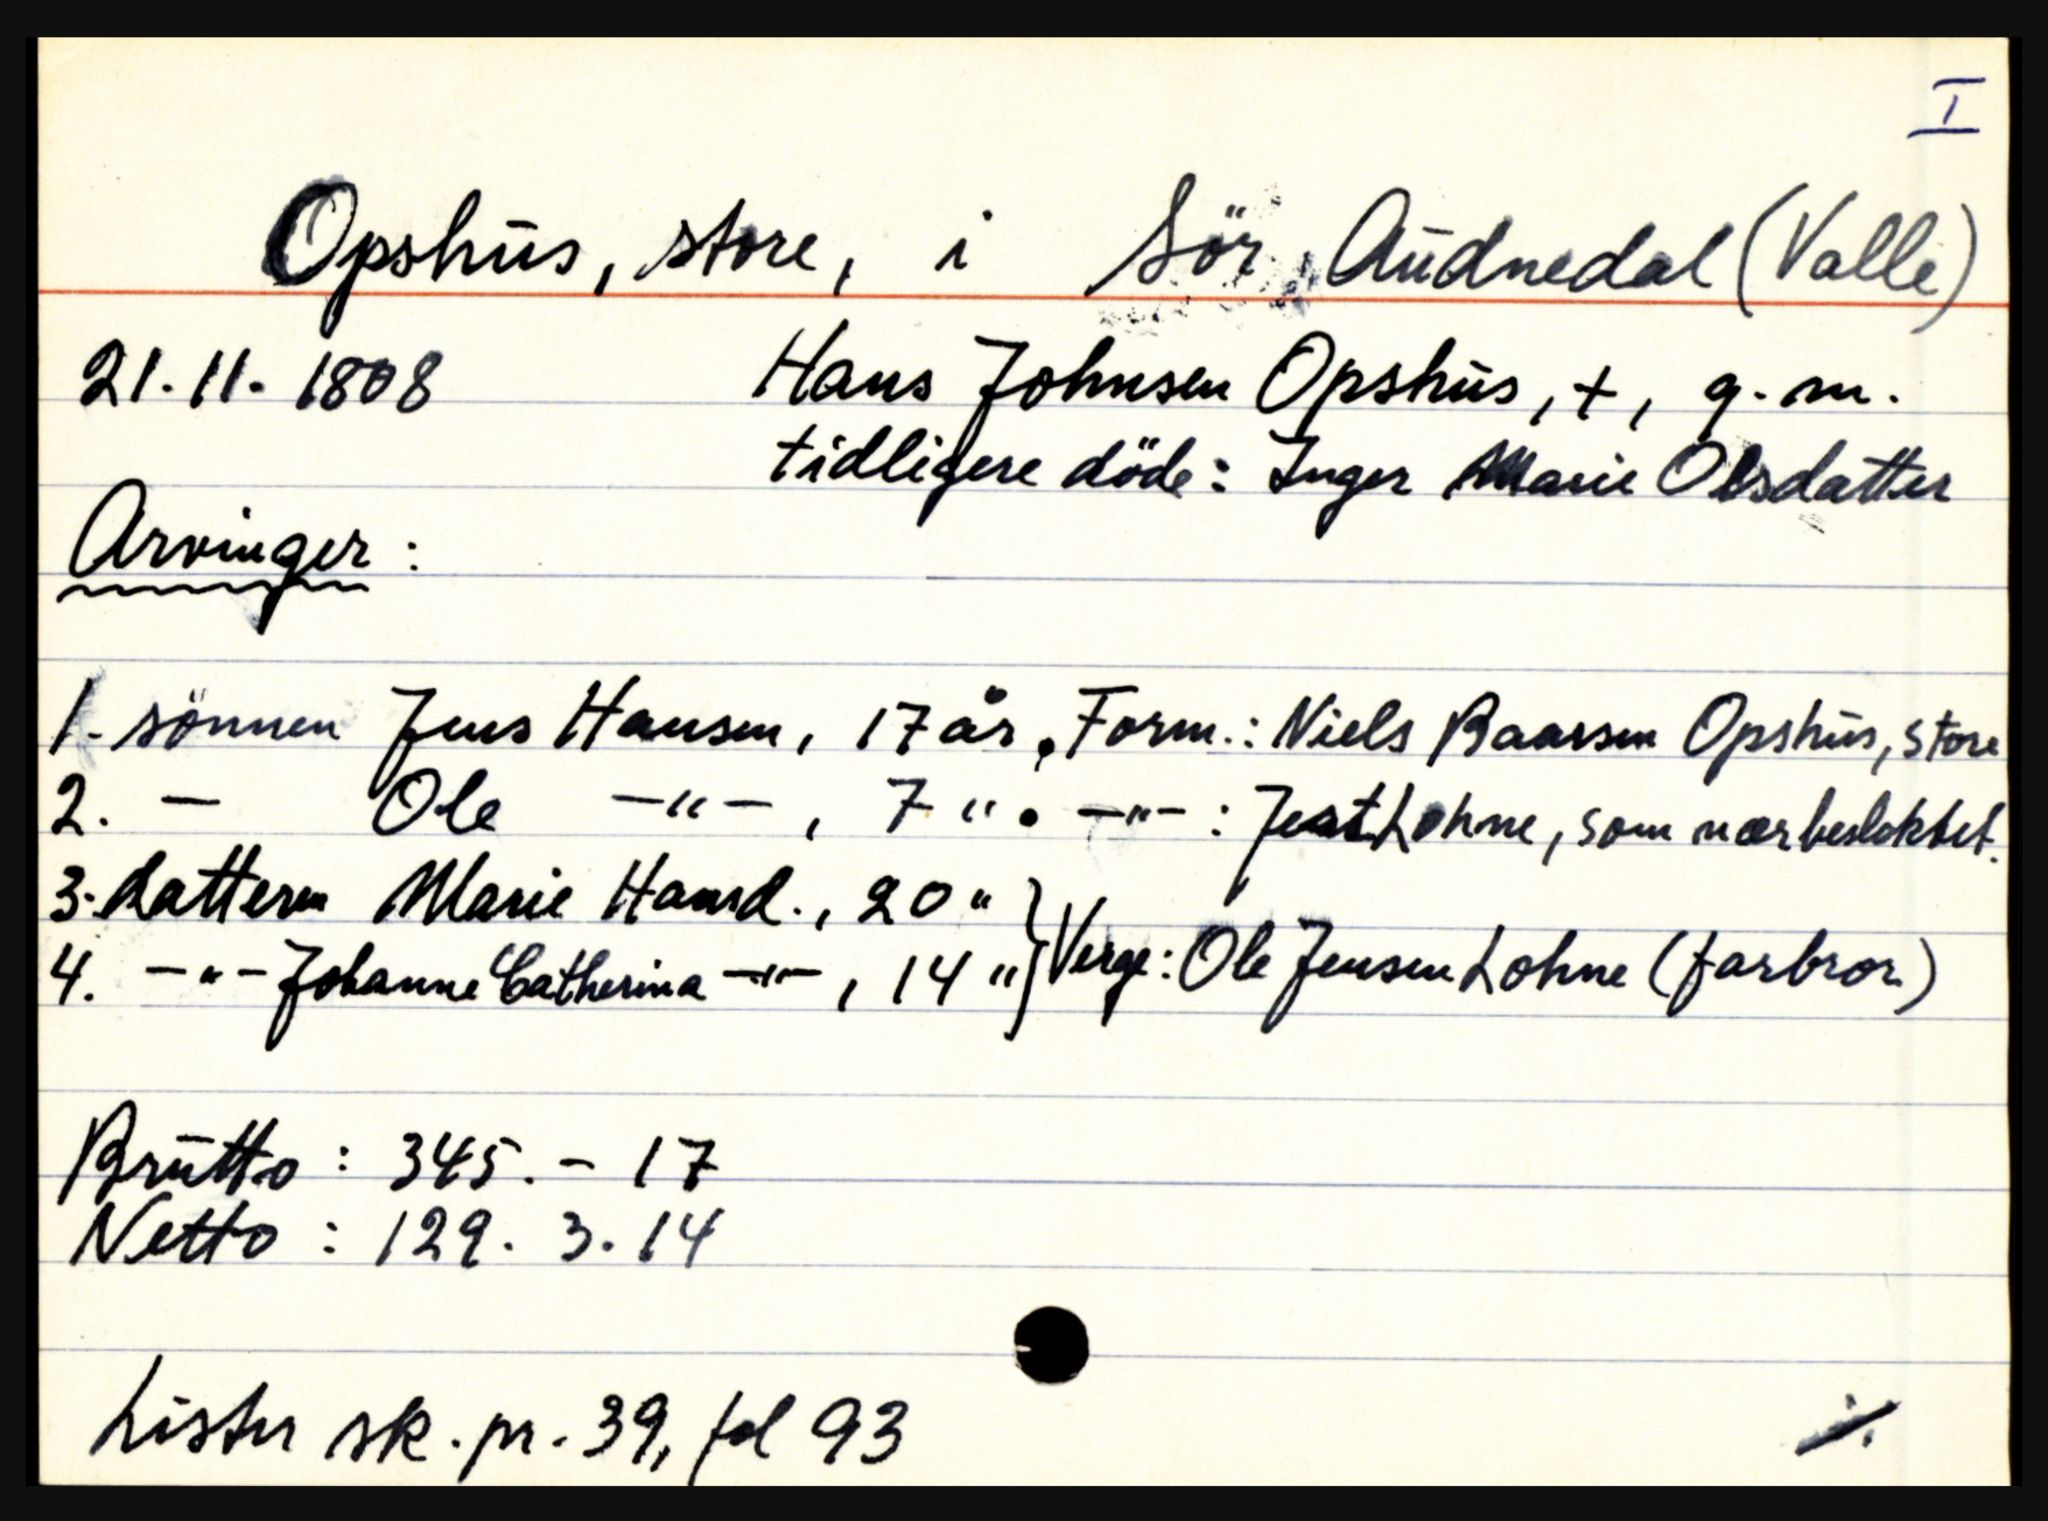 I
Opshus, store, i Sör Audnedal (Valle)
21.11.1808 Hans Johnsen Opshus, +, g.m.
tidligere döde: Inger Marie Olsdatter
Arvinger:
1. sönnen Jens Hansen, 17 år. Form.: Niels Baarsen Opshus, store
2. — Ole —"—, 7 ". —"—: Lohne, som nær beslektet.
3. datteren Marie Hansd., 20 "
4. —"— Johanne Catherina —"—, 14 " } Verge: Ole Jensen Lohne (farbror)
Brutto: 345. - 17
Netto: 129. 3. 14
Lister sk.pr. 39, fol 93
./.